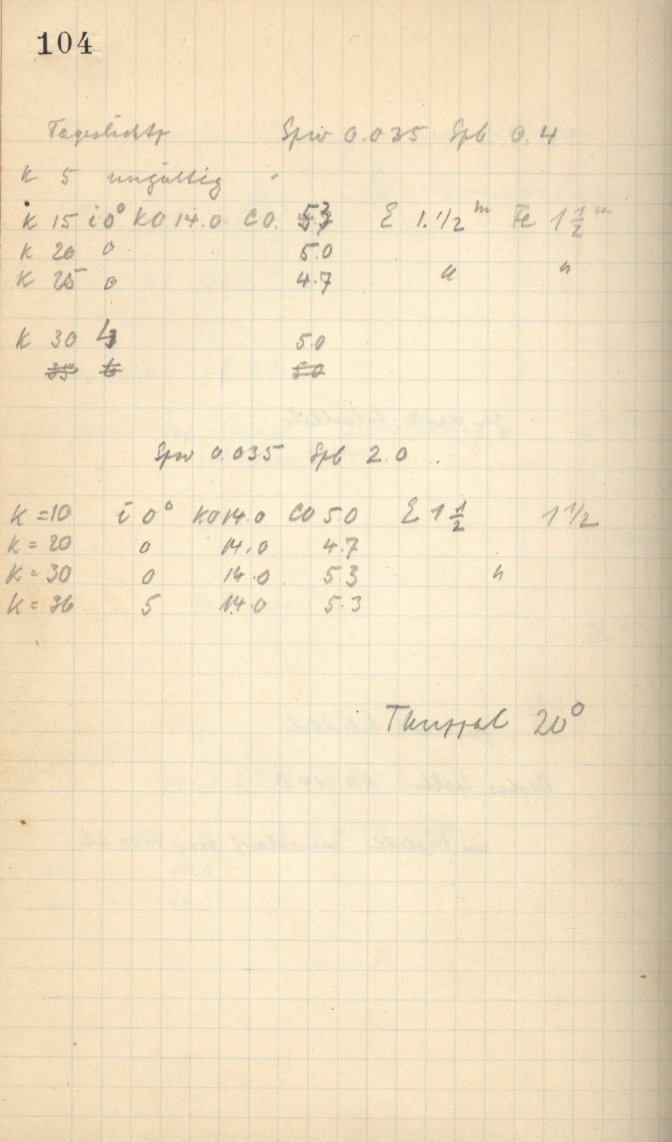 104
Tageslichtsp Spw 0.035 Spb 0.4
K 5 ungültig
K 15 i 0° KO 14.0 CO. 53 E 1.1/2 m Fe 1 1/2 m
K 20 0 5.0
K 25 0 4.7 " "
K 30 5.0
35 6 50
Spw 0.035 Spb 2.0
K = 10 i 0° KO 14.0 CO 5.0 E 1 1/2 1 1/2
K = 20 0 14.0 4.7
K = 30 0 14.0 5.3 "
K = 36 5 14.0 5.3
20°